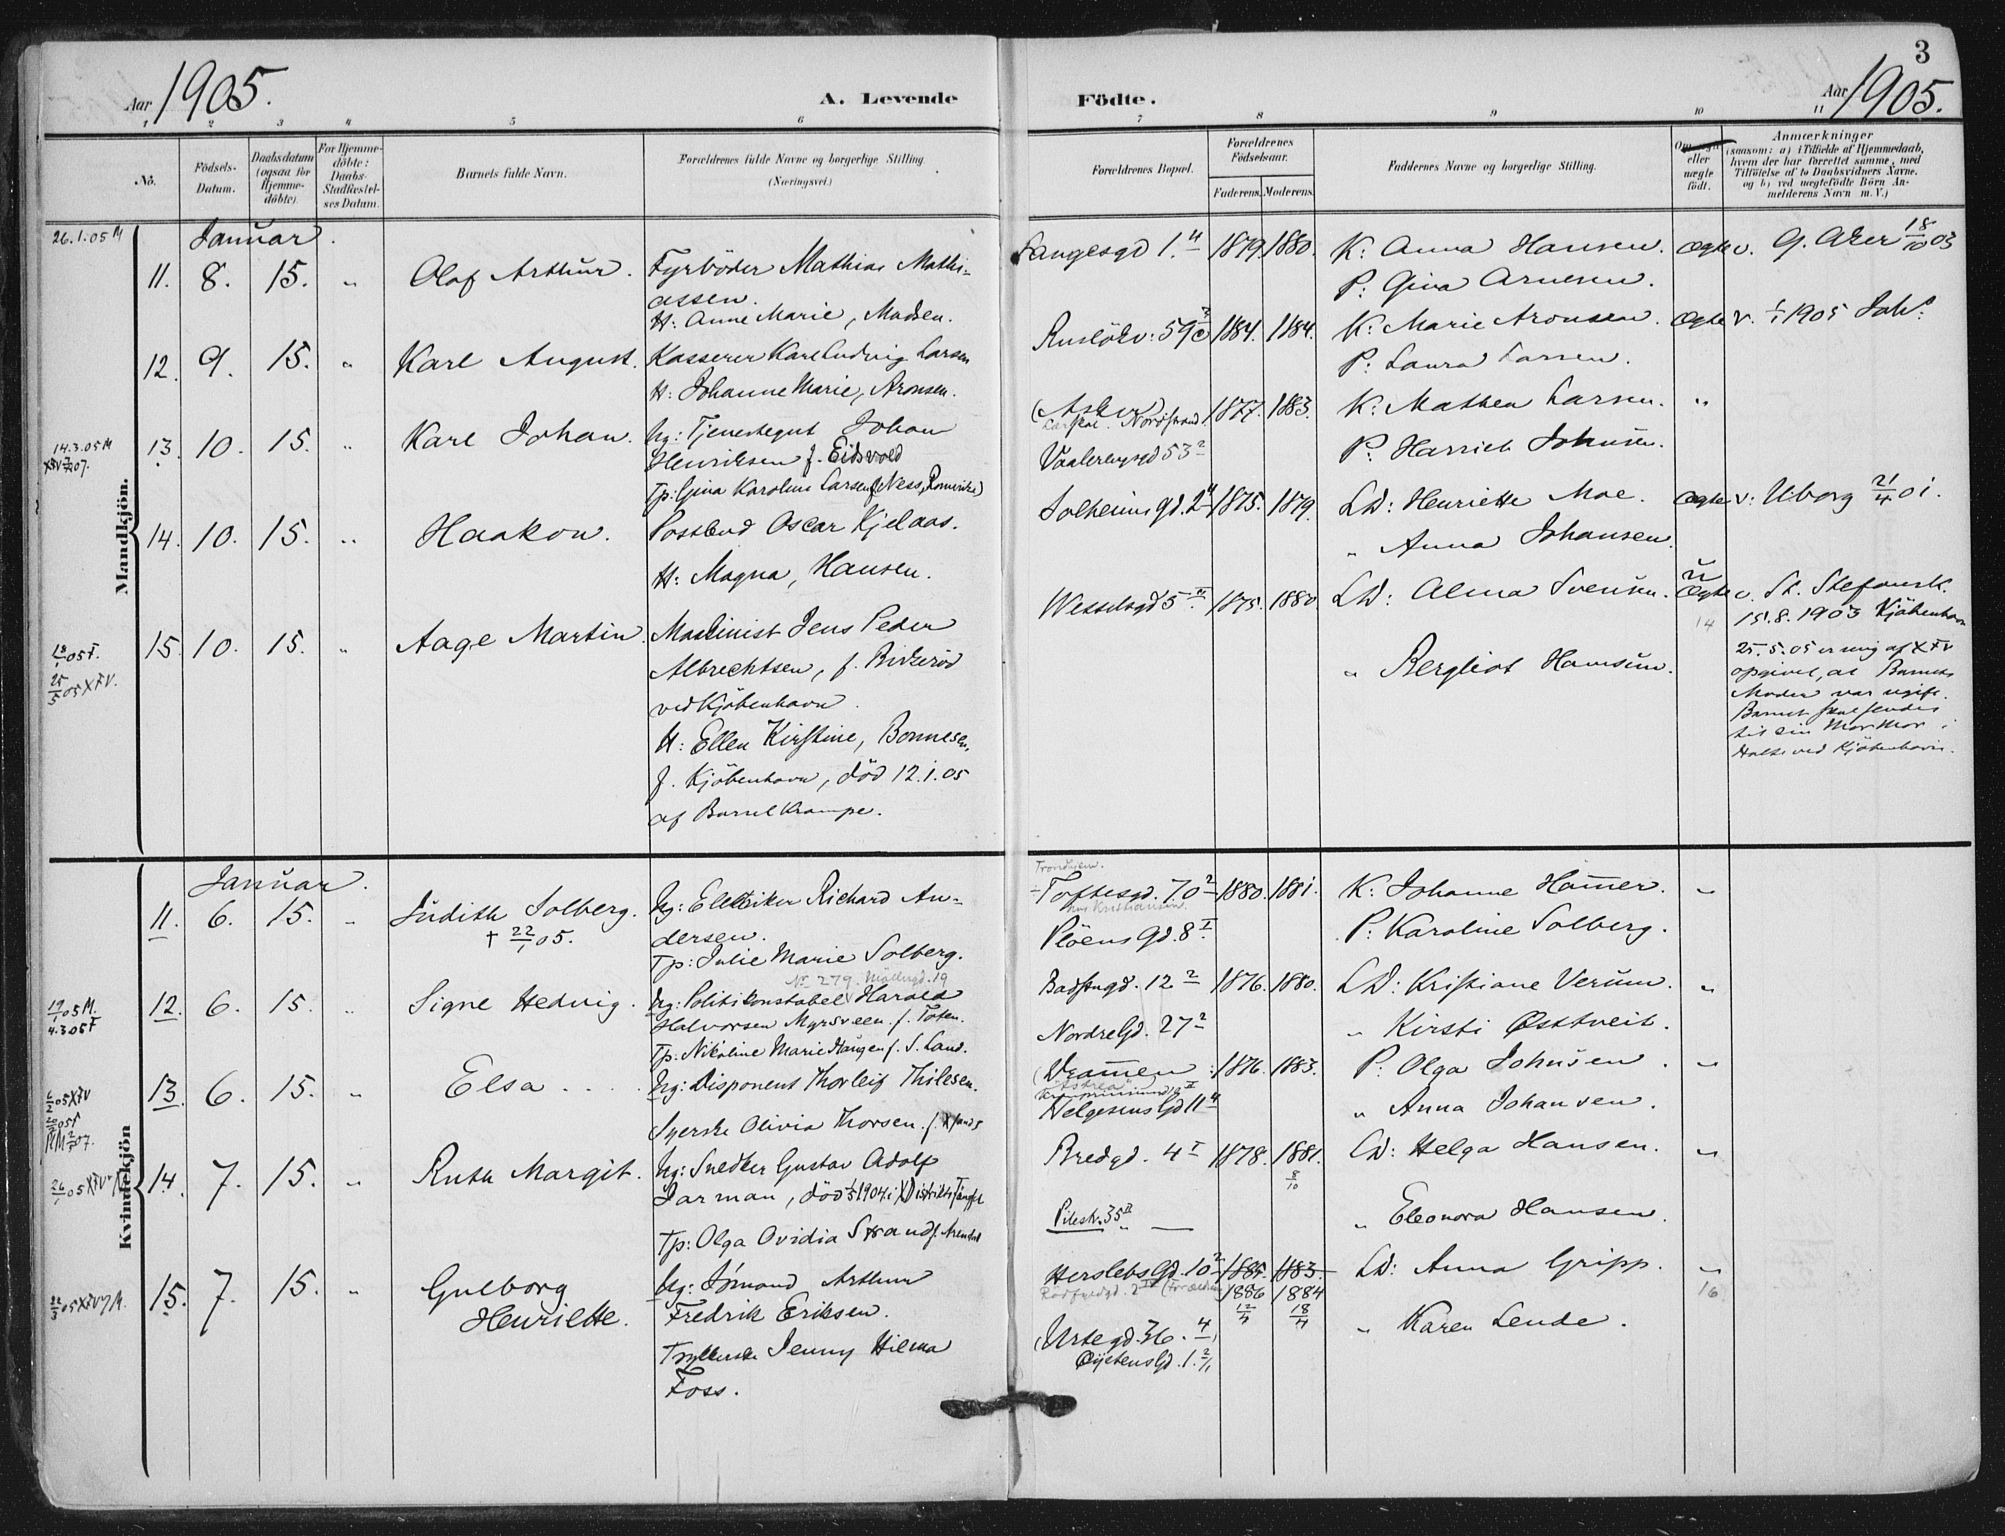 3
Aar 1905.
A. Levende
Födte.
Aar 1905.
1 2 3 4 5 6 7 8 9 10 11
No.
Födsels-
Datum.
Daabsdatum
(ogsaa for
Hjemme-
döbte).
For Hjemme-
döbte:
Daabs-
Stadfæstel-
ses Datum.
Barnets fulde Navn.
Forældrenes fulde Navne og borgerlige Stilling
(Næringsvei.)
Forældrenes Bopæl.
Forældrenes
Födselsaar.
Faderens.
Moderens.
Faddernes Navne og borgerlige Stilling.
eller
uægte
födt.
Anmærkninger
(saasom: a) i Tilfælde af Hjemmedaab,
hvem der har forrettet samme, med
Tilföielse af to Daabsvidners Navne,
og b) ved uægtefödte Börn An-
melderens Navn m. V.)
Mandkjön.
Januar.
26.1.05 M
11. 8. 15. " Olaf Arthur.
Fyrböder Mathias Mathi-
assen.
H: Anne Marie, Madsen.
Langesgd 1. 4 1879. 1880.
K: Anna Hansen.
P: Gina Arnesen.
Ægte v. G. Aker 18/10 03
12. 9. 15. " Karl August.
Kasserer Karl Ludvig Larsen
H: Johanne Marie, Aronsen.
Ruslökv: 59c 1884. 1884.
K: Marie Aronsen.
P: Laura Larsen.
Ægte v. 1/1 1905 Joh.
14.3.05 M
13. 10. 15. " Karl Johan.
Ug: Tjenestegut Johan
Henriksen f. Eidsvold
Tp: Gina Karoline Larsen f. Næss, Romerike)
(Asker)
Nordstrand
Vaalerenggd 53 2
1877. 1883.
K: Mathea Larsen.
P: Harriet Johnsen.
"
14. 10. 15. " Haakon.
Postbud Oscar Kjelaas.
H: Magna, Hansen.
Solheimsgd. 2 4 1875. 1879.
LD: Henriette Moe.
" Anna Johansen.
Ægte v: Uborg 21/4 01.
18/1 05 F.
25/5 05 XFV.
15. 10. 15. " Aage Martin.
Maskinist Jens Peder
Albrechtsen, f. Birkeröd
ved Kjöbenhavn.
H: Ellen Kirstine, Bonnesen,
f. Kjöbenhavn, död 12.1.05
af Barselkrampe.
Wesselsgd 5 1875. 1880
LD: Alma Svensen.
" Bergliot Hamsun.
u
Ægte
14
v. St. Stefansk.
15.8.1903 Kjöbenhavn
25.5.05 er mig af XFV
opgivet, at Barnets
Moder var ugift.
Barnet skal sendes
til sin Mormor i
Holte ved Kjöbenhavn.
Kvindekjön
Januar.
11. 6. 15. " Judith Solberg.
† 22/1 05.
Ug: Elektriker Richard An-
dersen.
Tp: Julie Marie Solberg.
Trondhjem.
Toftesgd. 70 2
hos Kristiansen.
Plöens Gd. 8 I
1880. 1881.
K: Johanne Hammer.
P: Karoline Solberg.
"
19/1 05 M.
4.3.05 F
12. 6. 15. " Signe Hedvig.
No 279. Möllergd. 19
Ug: Politikonstabel Harald
Halvorsen Myrsveen f. Toten.
Tp: Nikoline Marie Haugen f. S. Land.
Badstugd. 12 2
Nordre Gd. 27 2
1876. 1880.
LD: Kristiane Verum.
" Kirsti Østtveit.
"
6/2 05 XFV
13. 6. 15. " Elsa
Ug: Disponent Thorleif Thilesen.
Syerske Olivia Thorsen. f. Xsands
(Drammen
"Astrea"
Helgesens Gd 11 4
1876. 1883.
P: Olga Johnsen.
" Anna Johansen.
"
26/1 05 XFV
14. 7. 15. " Ruth Margit.
Ug: Snedker Gustav Adolf
Jarman, död 1/5 1904 i XDistriktsfængsel
Tp: Olga Ovidia Strand f. Arendal
Bredgd. 4 I
Pilestr. 35 II
1878. 1881.
8/10
LD: Helga Hansen.
" Eleonora Hansen.
"
22/3 05 XFV
15. 7. 15. " Gulborg
Henriette.
Ug: Sömand Arthur
Fredrik Eriksen.
Trykkerske Jenny Hilma
Foss.
Herslebs Gd. 10 2
(Forældre)
Urtegd. 36. 4
Øistens Gd. 1. 2
1885. 1883.
1886 1884
12/4 18/4
LD: Anna Gripp.
" Karen Lende.
"
16